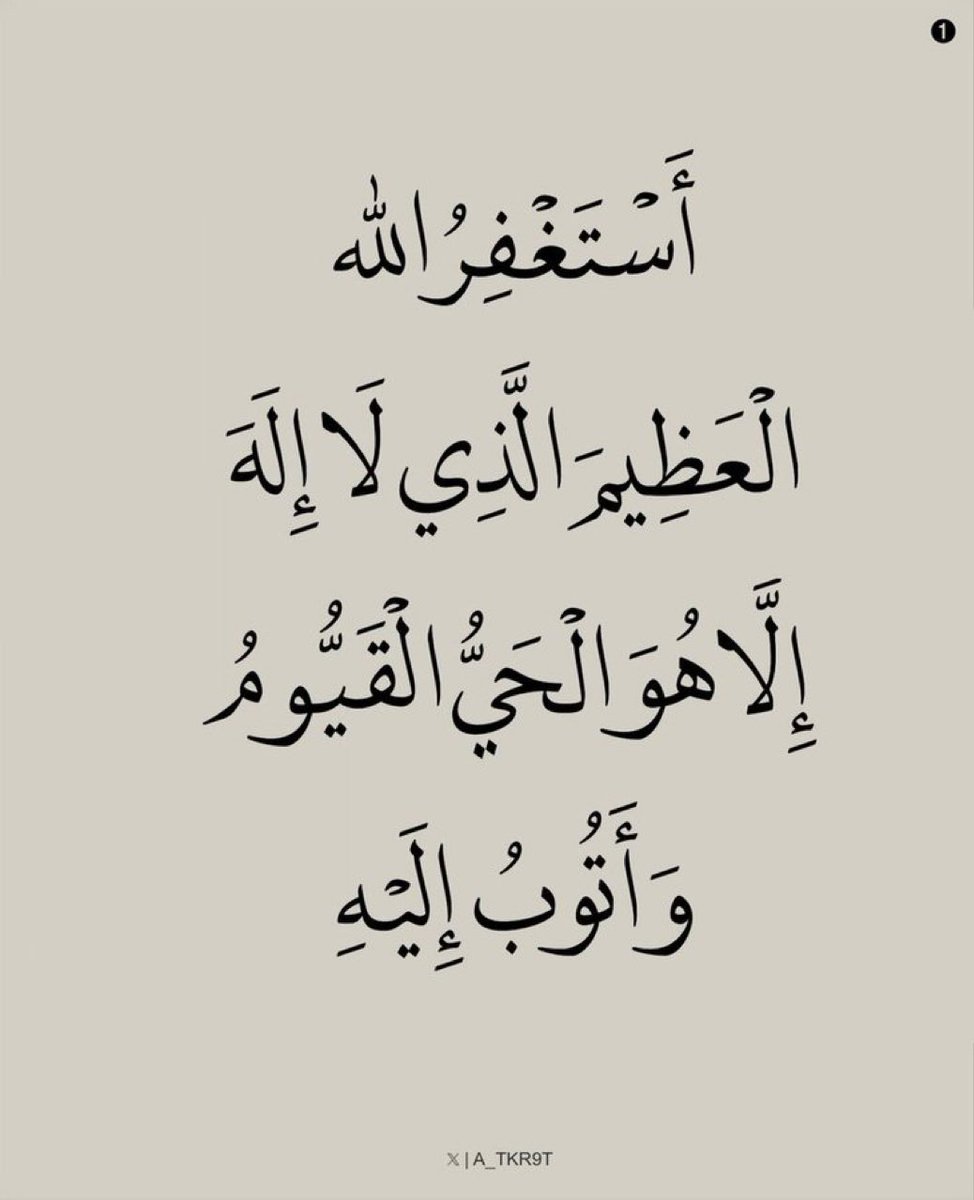 ❶
أَسْتَغْفِرُ الله
الْعَظِيمَ الَّذِي لَا إِلَهَ
إِلَّا هُوَ الْحَيُّ الْقَيُّومُ
وَأَتُوبُ إِلَيْهِ
𝕏 | A_TKR9T